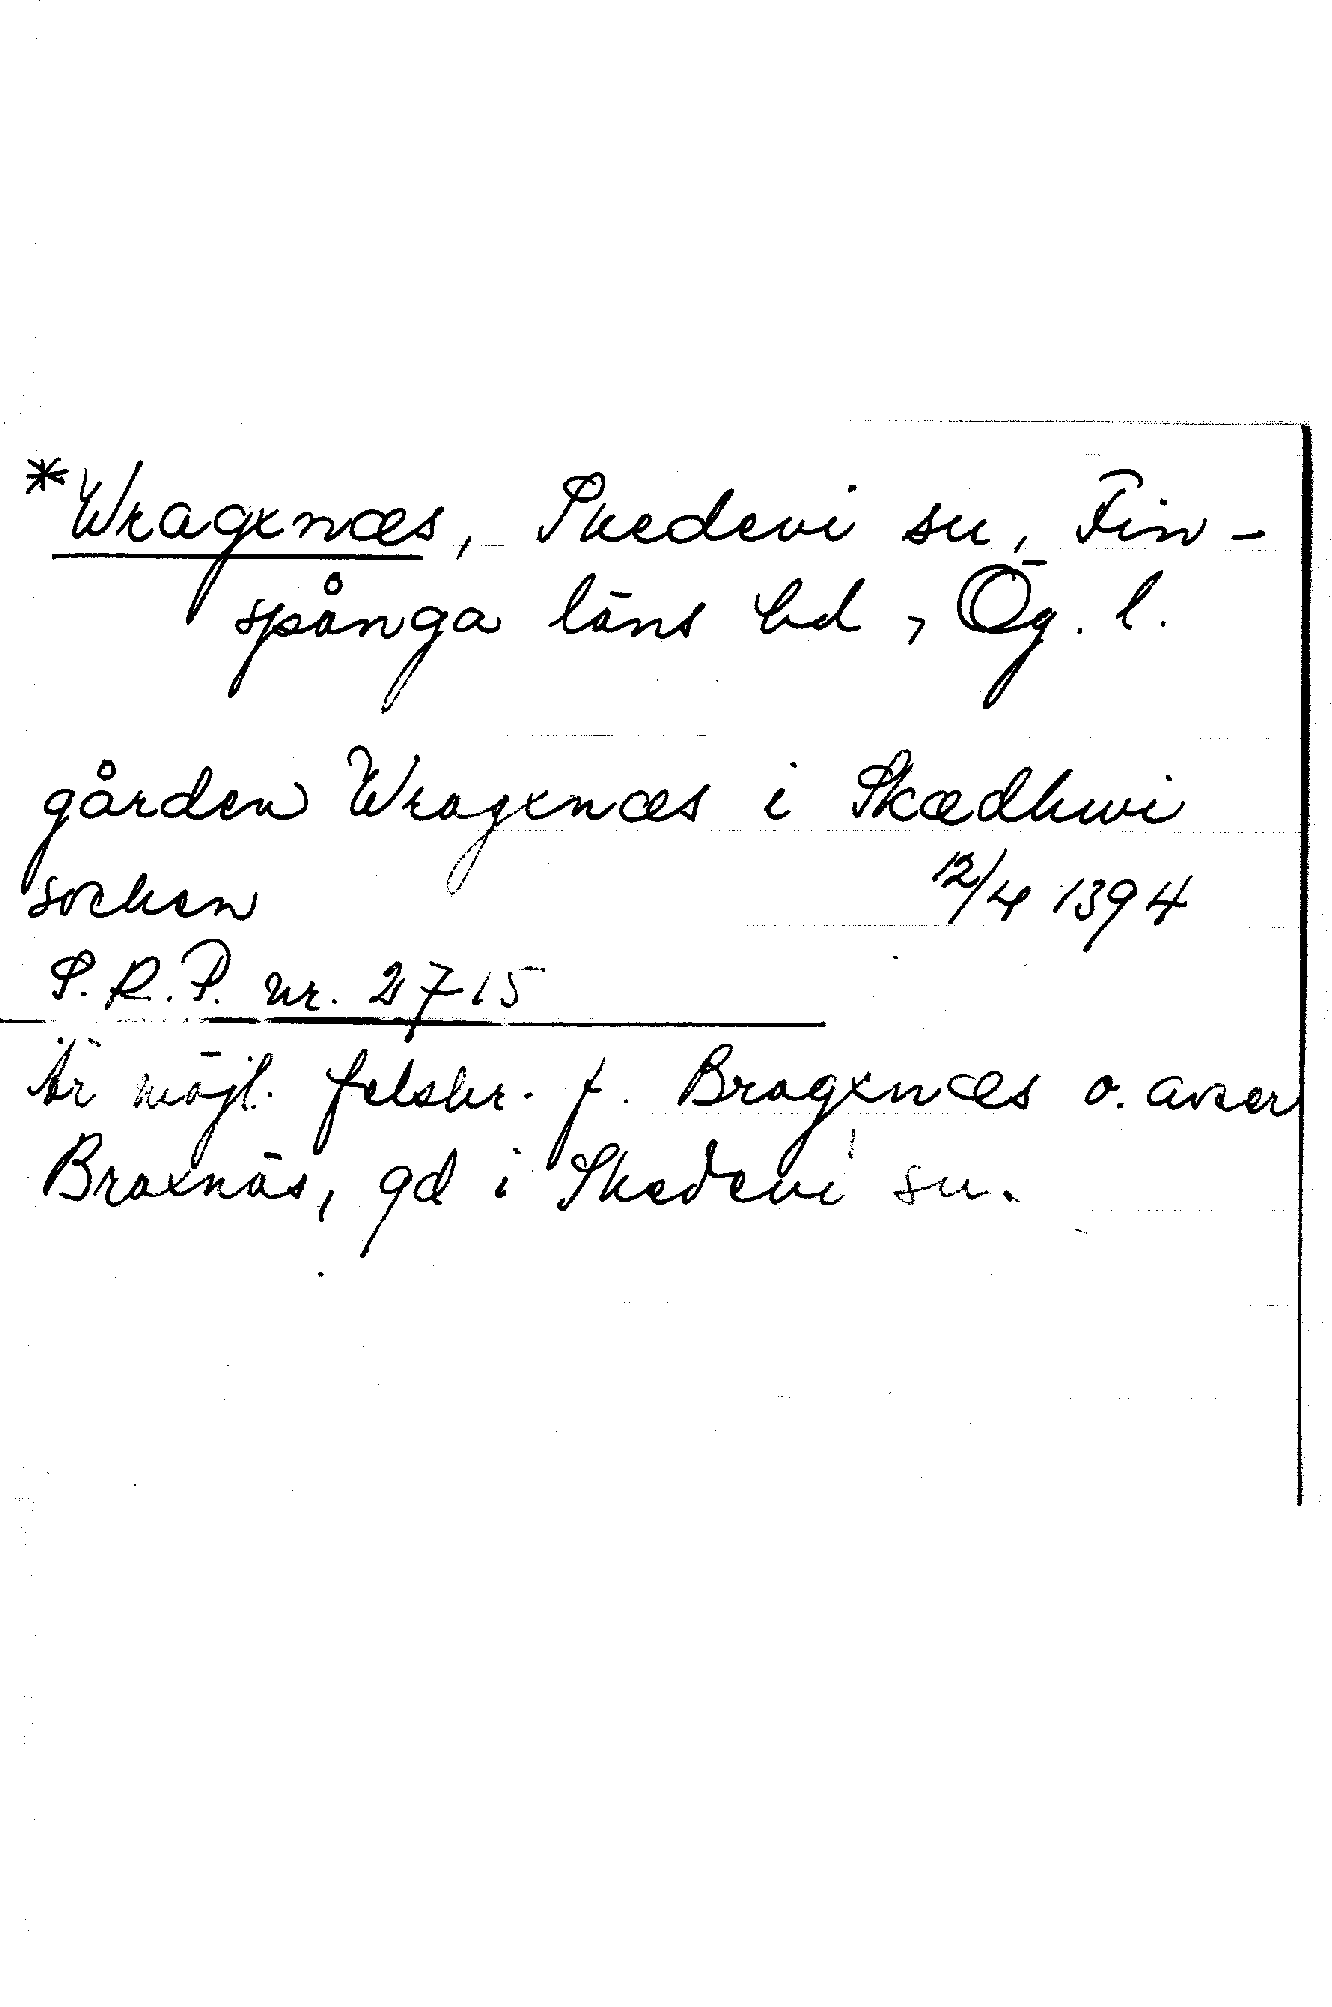 *Wragxnæs, Skedevi sn, Fin-
spånga läns hd, Ög. l.
gården Wragxnæs i Skædhwi
socken 12/4 1394
S.R.P. nr. 2715
Är möjl. felskr. f. Bragxnæs o. avser
Braxnäs, gd i Skedevi sn.